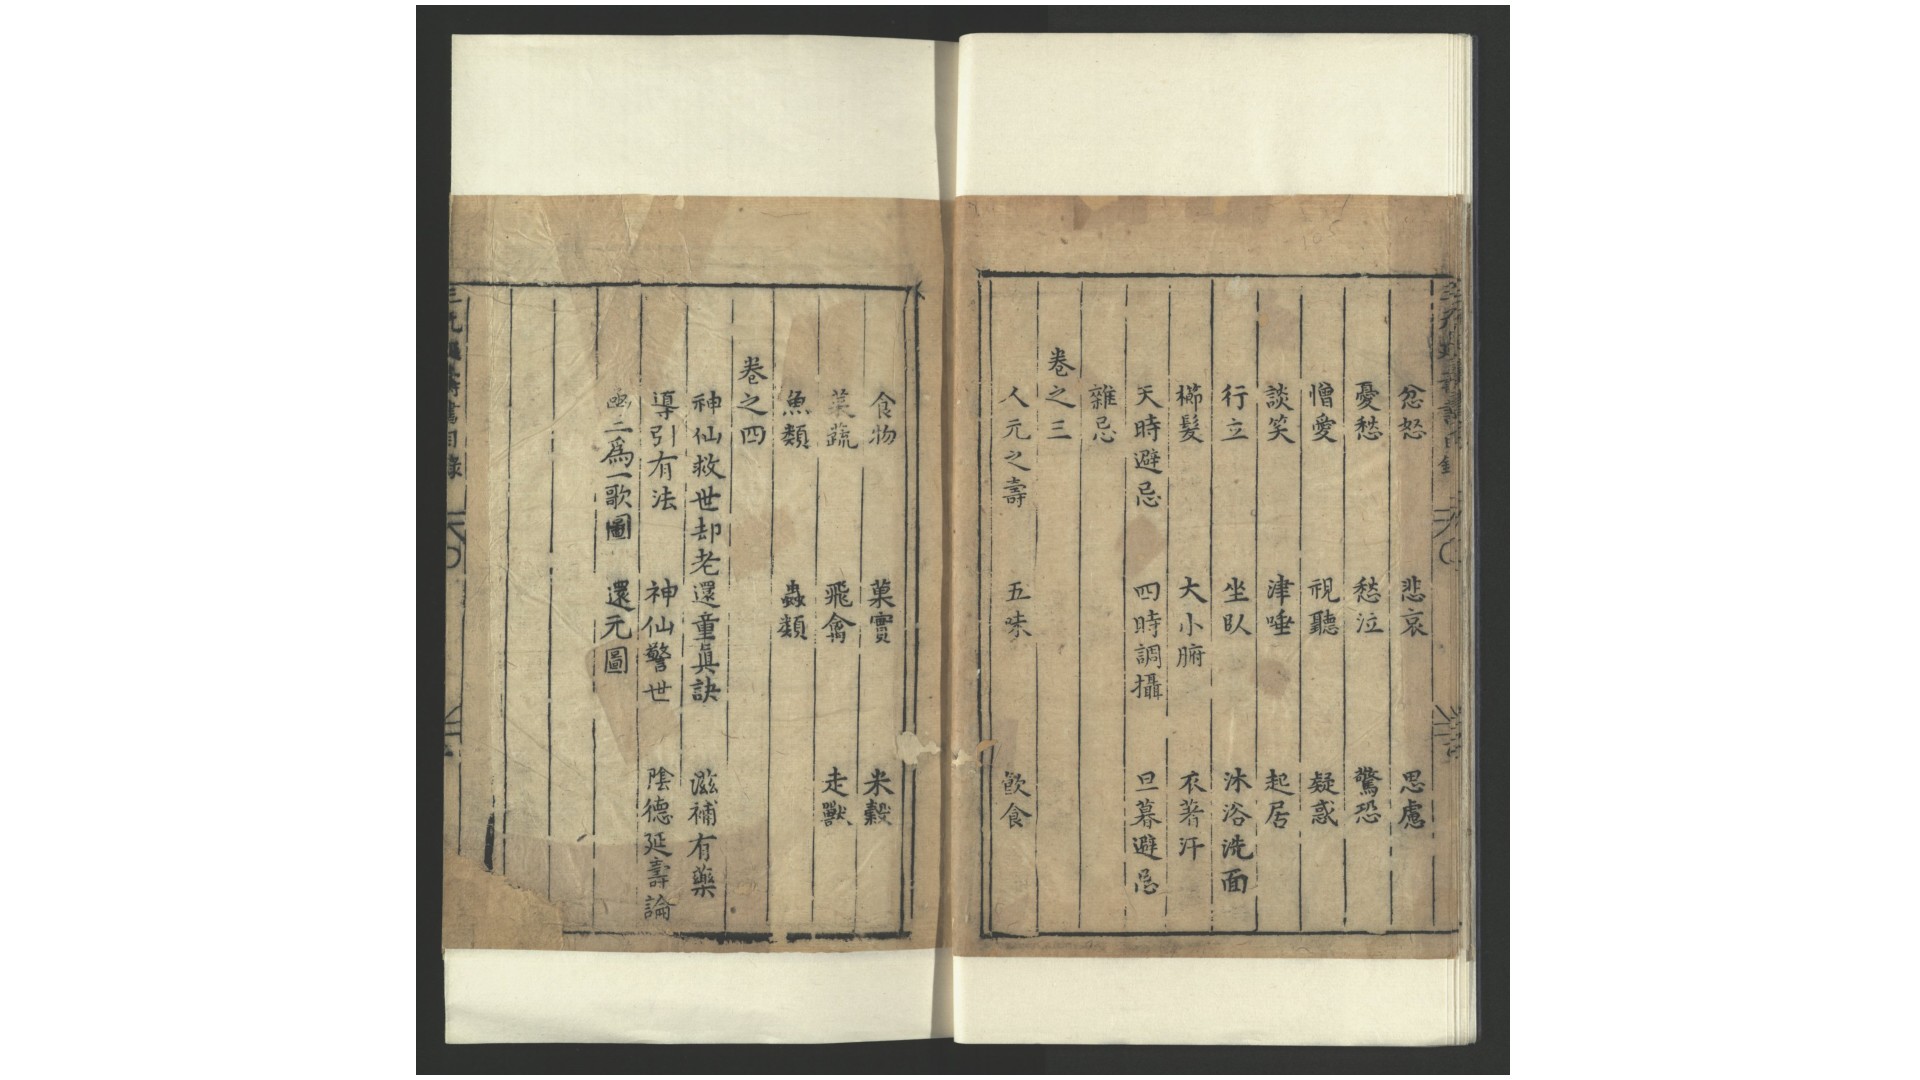 忿怒 悲哀 思慮
憂愁 愁泣 驚恐
憎愛 視聽 疑惑
談笑 津唾 起居
行立 坐臥 沐浴洗面
櫛髮 大小腑 衣著汗
天時避忌 四時調攝 旦暮避忌
雜忌
卷之三
人元之壽 五味 飲食
食物 菓實 米穀
菜蔬 飛禽 走獸
魚類 蟲類
卷之四
神仙救世却老還童眞訣 滋補有藥
導引有法 神仙警世 陰德延壽論
二爲一歌圖 還元圖
壽書目錄